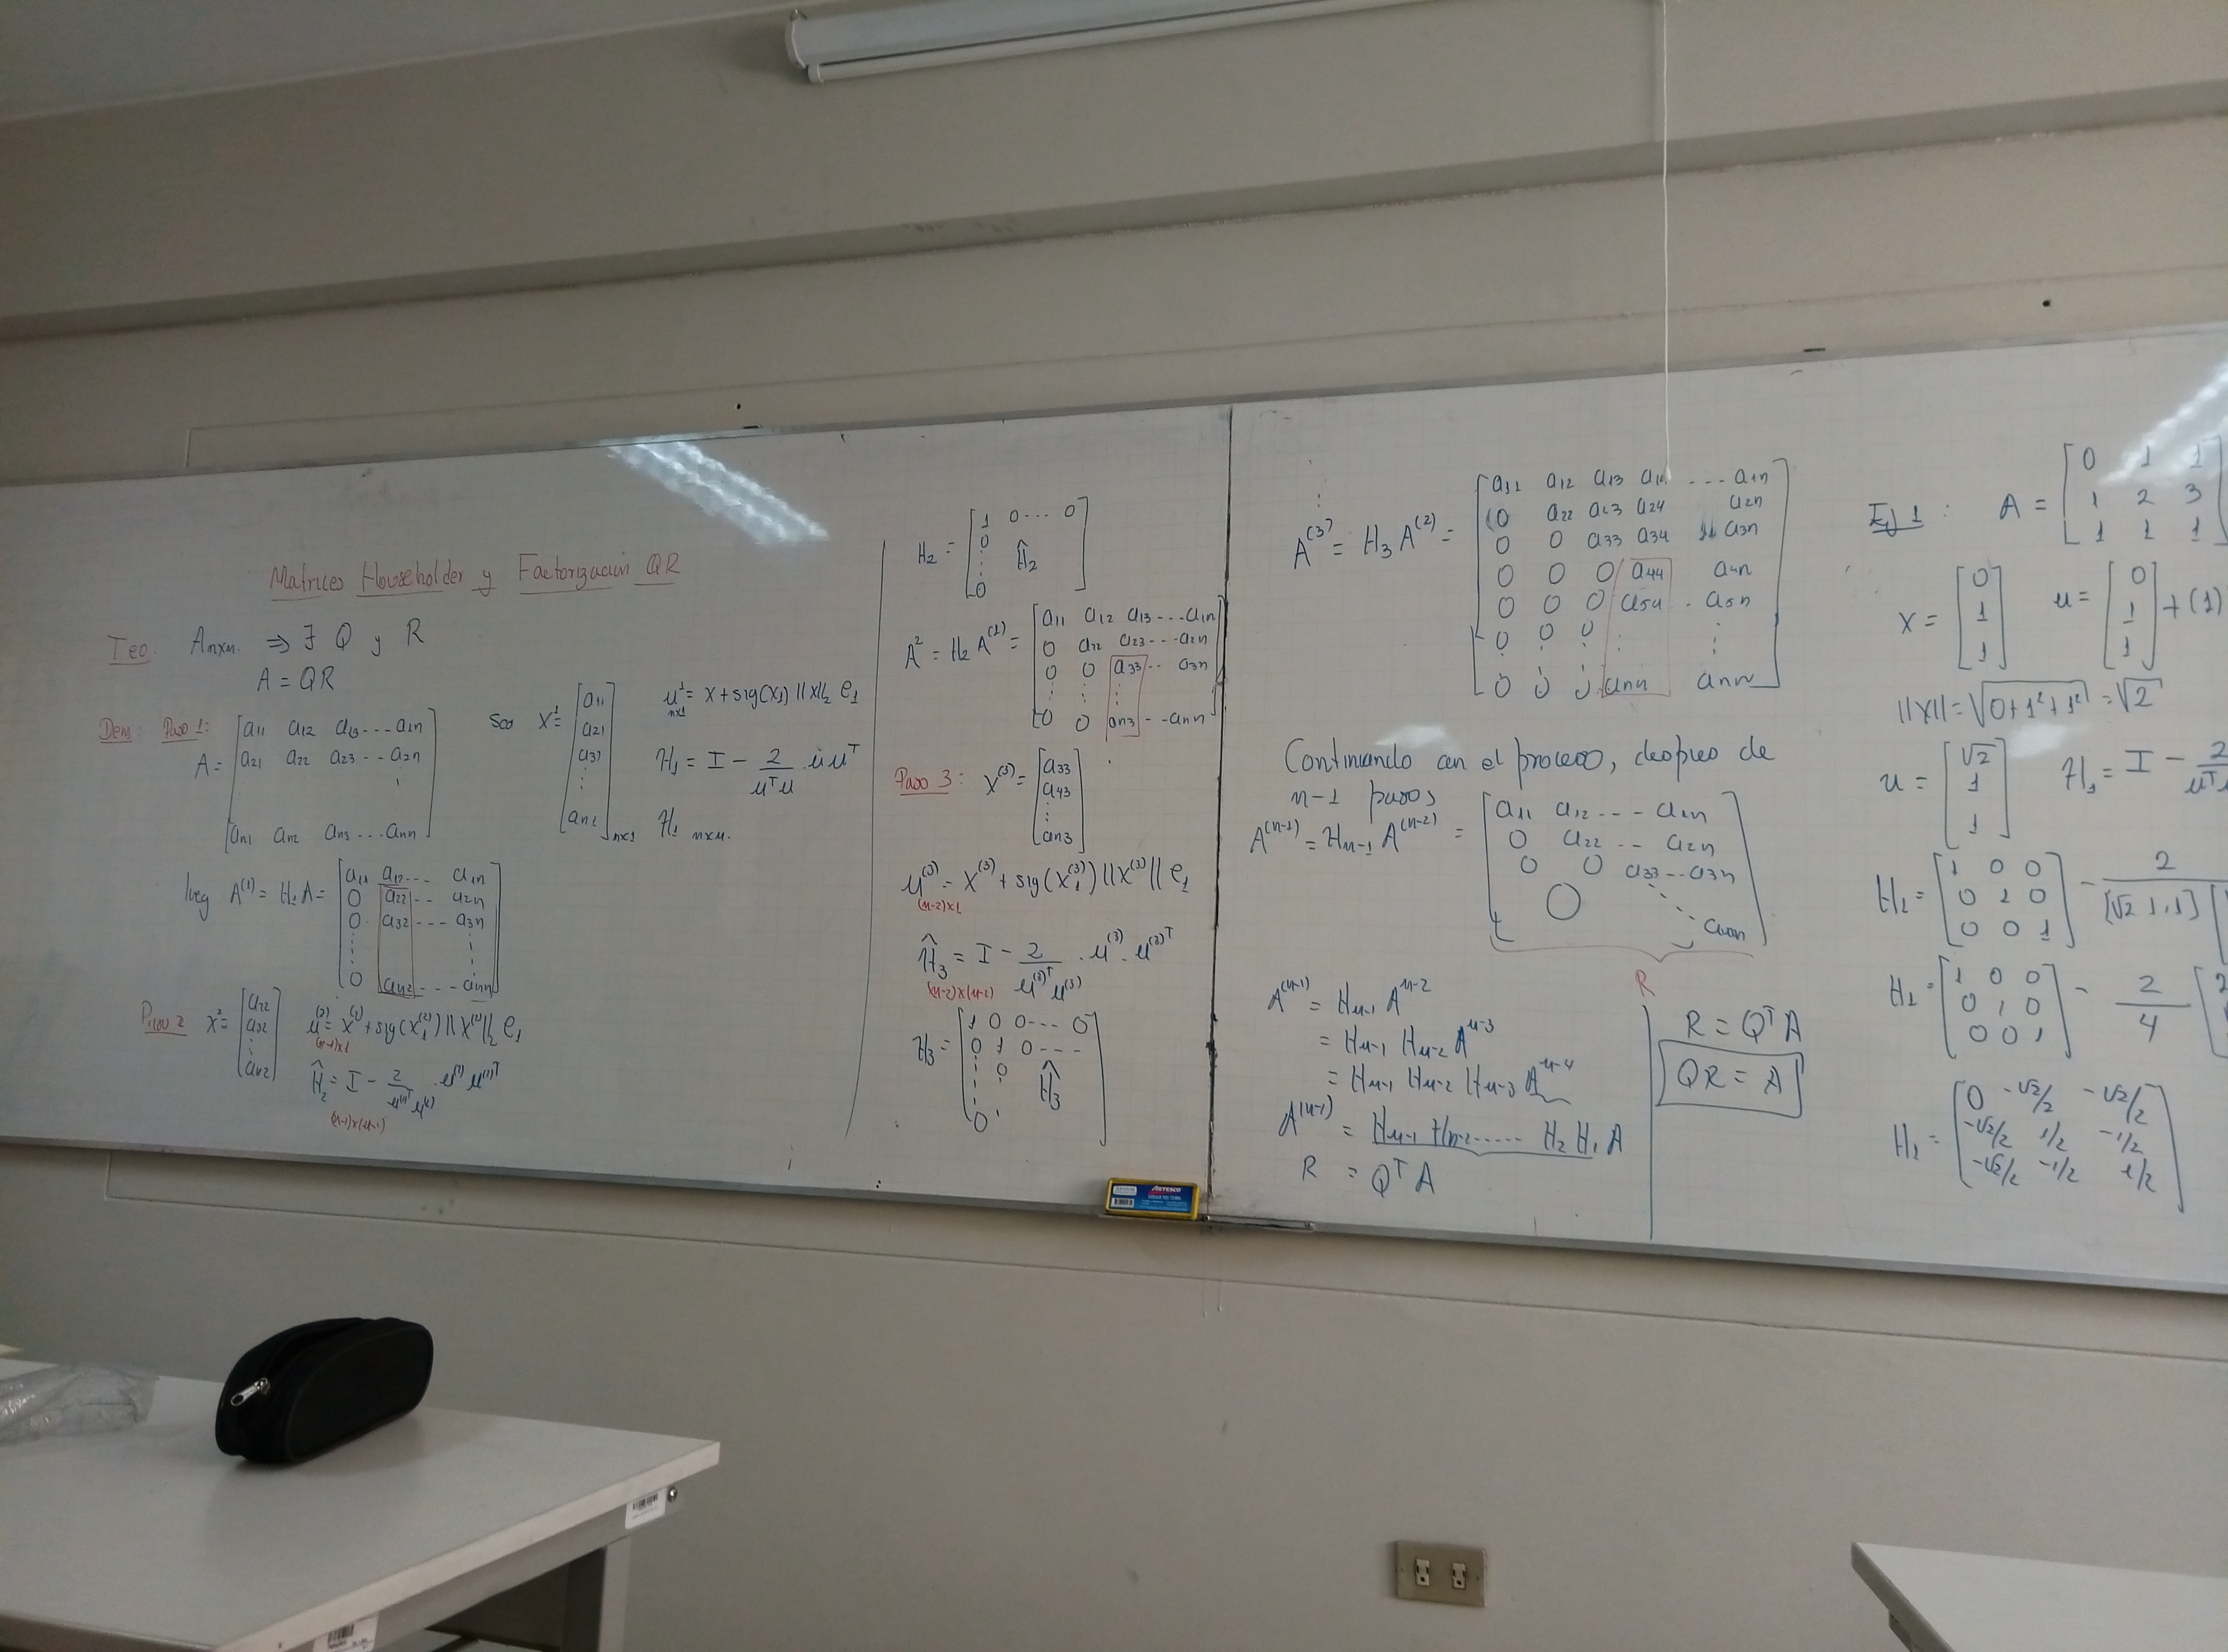 Matrices Householder y Factorización QR
Teo. Anxn. ⇒ ∃ Q y R
A = QR
Dem: Paso 1:
A = [a11 a12 a13 ... a1n
a21 a22 a23 ... a2n
an1 an2 an3 ... ann]
Sea X¹ = [a11
a21
a31
⋮
an1] nx1
u¹ = x + sig(x1) ||x||2 e1
nx1
H1 = I - 2/(uᵀu) . u uᵀ
H1 nxn.
lueg A(1) = H1 A = [a11 a12 ... a1n
0 a22 ... a2n
0 a32 ... a3n
⋮
0 an2 ... ann]
Paso 2 x² = [a22
a32
⋮
an2]
u(2) = x(2) + sig(x1(2)) ||x(2)||2 e1
(n-1)x1
Ĥ2 = I - 2/(u(2)ᵀ u(2)) . u(2) u(2)ᵀ
(n-1)x(n-1)
H2 = [1 0 ... 0
0
⋮ Ĥ2
0]
A² = H2 A(1) = [a11 a12 a13 ... a1n
0 a22 a23 ... a2n
0 0 a33 ... a3n
⋮ ⋮ ⋮
0 0 an3 -- ann]
Paso 3: X(3) = [a33
a43
⋮
an3]
u(3) = X(3) + sig(X1(3)) ||X(3)|| e1
(n-2)x1
Ĥ3 = I - 2/(u(3)ᵀ u(3)) . u(3) . u(3)ᵀ
(n-2)x(n-2)
H3 = [1 0 0 --- 0
0 1 0 ---
⋮ 0 Ĥ3
0]
⋮
A(3) = H3 A(2) = [a11 a12 a13 a14 ... a1n
0 a22 a23 a24 a2n
0 0 a33 a34 a3n
0 0 0 a44 a4n
0 0 0 a54 . a5n
0 0 0 ⋮ ⋮
0 0 0 ann ann]
Continuando con el proceso, despues de
n-1 pasos
A(n-1) = Hn-1 A(n-2) = [a11 a12 --- a1n
0 a22 .. a2n
0 0 a33 ... a3n
0 ann]
R
A(n-1) = Hn-1 A n-2
= Hn-1 Hn-2 A n-3
= Hn-1 Hn-2 Hn-3 A n-4
A(n-1) = Hn-1 Hn-2 ..... H2 H1 A
R = Qᵀ A
R = Qᵀ A
QR = A
Ej 1: A = [0 1 1
1 2 3
1 1 1]
X = [0
1
1]
u = [0
1
1] + (1)
||X|| = √(0+1²+1²) = √2
u = [√2
1
1]
H1 = I - 2/(uᵀu
H1 = [1 0 0
0 1 0
0 0 1] - 2/([√2 1 1]
H1 = [1 0 0
0 1 0
0 0 1] - 2/4 [2
H1 = [0 -√2/2 -√2/2
-√2/2 1/2 -1/2
-√2/2 -1/2 1/2]
ARTESCO